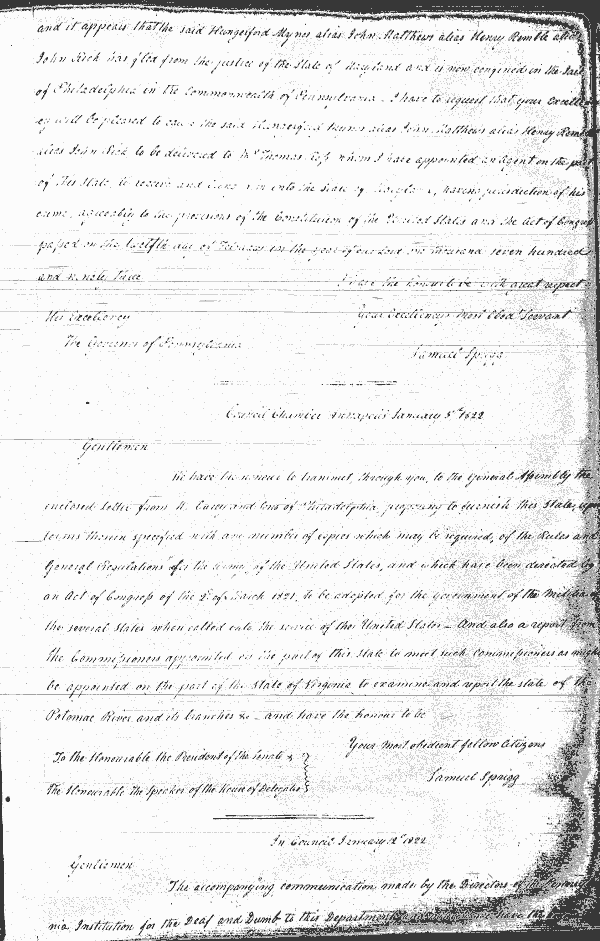 and it appears that the said Hungerford Mynes alias John Matthews alias Henry Remble alias
John Sick has fled from the justice of the State of Maryland and is now confined in the Jail
of Philadelphia in the Commonwealth of Pennsylvania. I have to request that your Excellen-
cy will be pleased to cause the said Hungerford alias John Matthews alias Henry Remble
alias John Sick to be delivered to Mr Thomas whom I have appointed an agent on the part
of this State, to receive and bring him into the State of having jurisdiction of his
crime, agreeably to the provisions of the Constitution of the United States and the Act of Congress
passed on the twelfth day of in the year of our Lord one thousand seven hundred
and ninety three
I have the honour to be with great respect
His Excellency
Your Excellency's Most Obedt Servant
The Governor of Pennsylvania
Samuel Sprigg
Council Chamber Annapolis January 5th 1822
Gentlemen
We have the honour to transmit, through you, to the General Assembly the
enclosed letter from Carey and of Philadelphia, proposing to furnish this State, upon
terms therein specified with any number of copies which may be required, of the Rules and
General Regulations for the Army of the United States, and which have been directed by
an Act of Congress of the 2d of March 1821, to be adopted for the government of the Militia of
the several States when called into the service of the United States — And also a report from
the Commissioners appointed on the part of this State to meet such Commissioners as might
be appointed on the part of the State of Virginia to examine and report the state of the
Potomac River and its branches &c — and have the honour to be
Your Most obedient fellow Citizens
To the Honourable the President of the Senate &
Samuel Sprigg
The Honourable the Speaker of the House of Delegates
In Council January 1822
Gentlemen
The accompanying communication made by the Directors of the
nia Institution for the Deaf and Dumb to this Department have the